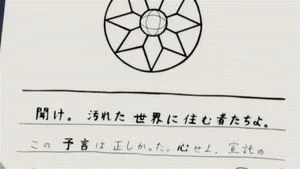 聞け。汚れた世界に住む者たちよ。
この予言は正しかった。心せよ、宣託の